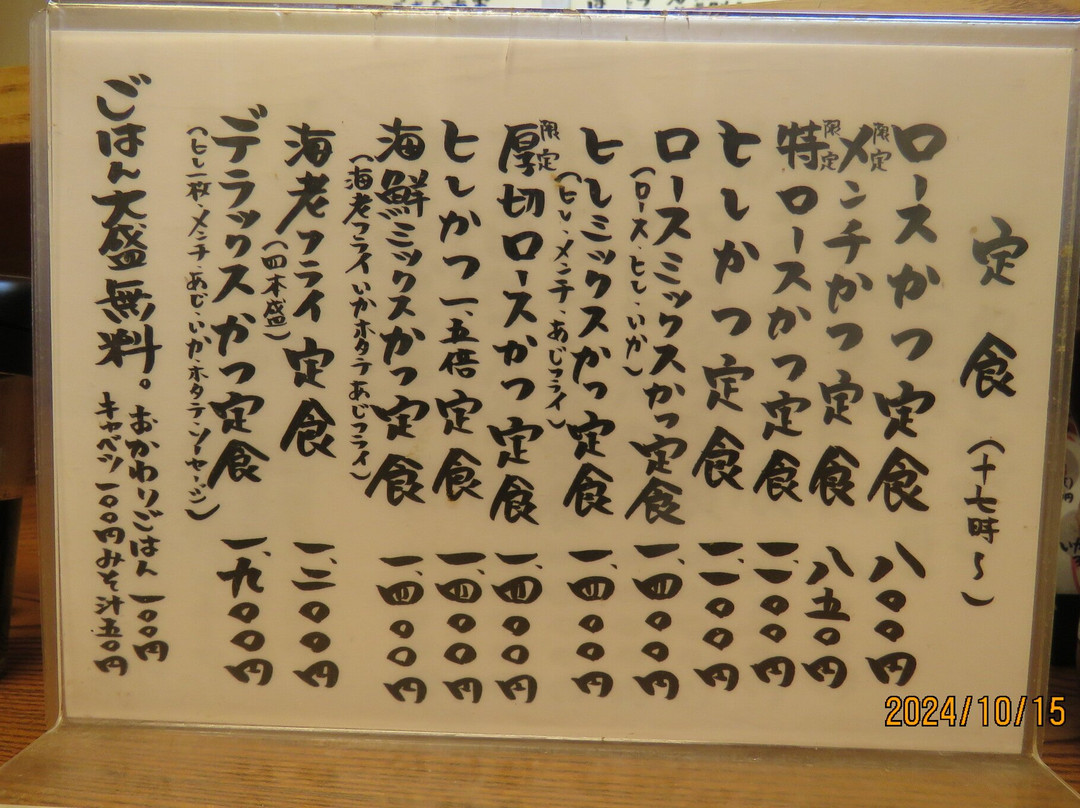 定食(十七時～)
ロースかつ定食 八〇〇円
限定 メンチかつ定食 八五〇円
限定 特ロースかつ定食 一、一〇〇円
ヒレかつ定食 一、一〇〇円
ロースミックスかつ定食 一、四〇〇円
(ロース・ヒレ・いか)
ヒレミックスかつ定食 一、四〇〇円
(ヒレ・メンチ・あじフライ)
限定 厚切ロースかつ定食 一、四〇〇円
ヒレかつ一、五倍定食 一、四〇〇円
海鮮ミックスかつ定食 一、四〇〇円
(海老フライ いかホタテあじフライ)
海老フライ定食 一、二〇〇円
(四本盛)
デラックスかつ定食 一、九〇〇円
(ヒレ一枚・メンチ・あじ・いか・ホタテ・ソーセージ)
ごはん大盛無料。
おかわりごはん一〇〇円
キャベツ一〇〇円みそ汁五〇円
2024/10/15